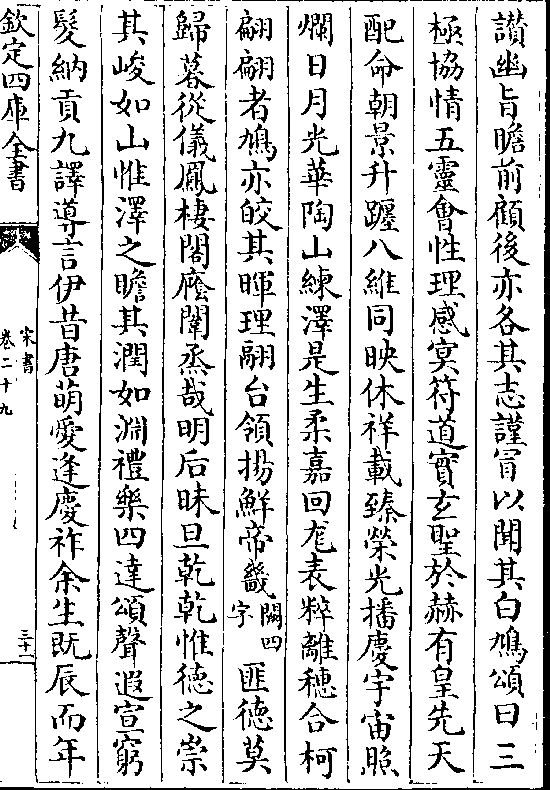 讃幽旨瞻前顧後亦各其志謹冒以聞其白鳩頌曰三
極協情五靈會性理感冥符道實玄聖於赫有皇先天
配命朝景升躔八維同映休祥載臻榮光播慶宇宙照
爛日月光華陶山練澤是生柔嘉回尨表粹離穗合柯
翩翩者鳩亦皎其暉理翮台領揚鮮帝畿闕四字匪德莫
歸暮從儀鳳棲閣廕闈烝哉明后昧旦乾乾惟德之崇
其峻如山惟澤之瞻其潤如淵禮樂四達頌聲遐宣窮
髮納貢九譯導言伊昔唐萌愛逢慶祚余生既辰而年
欽定四庫全書
宋書
卷二十九
三十二